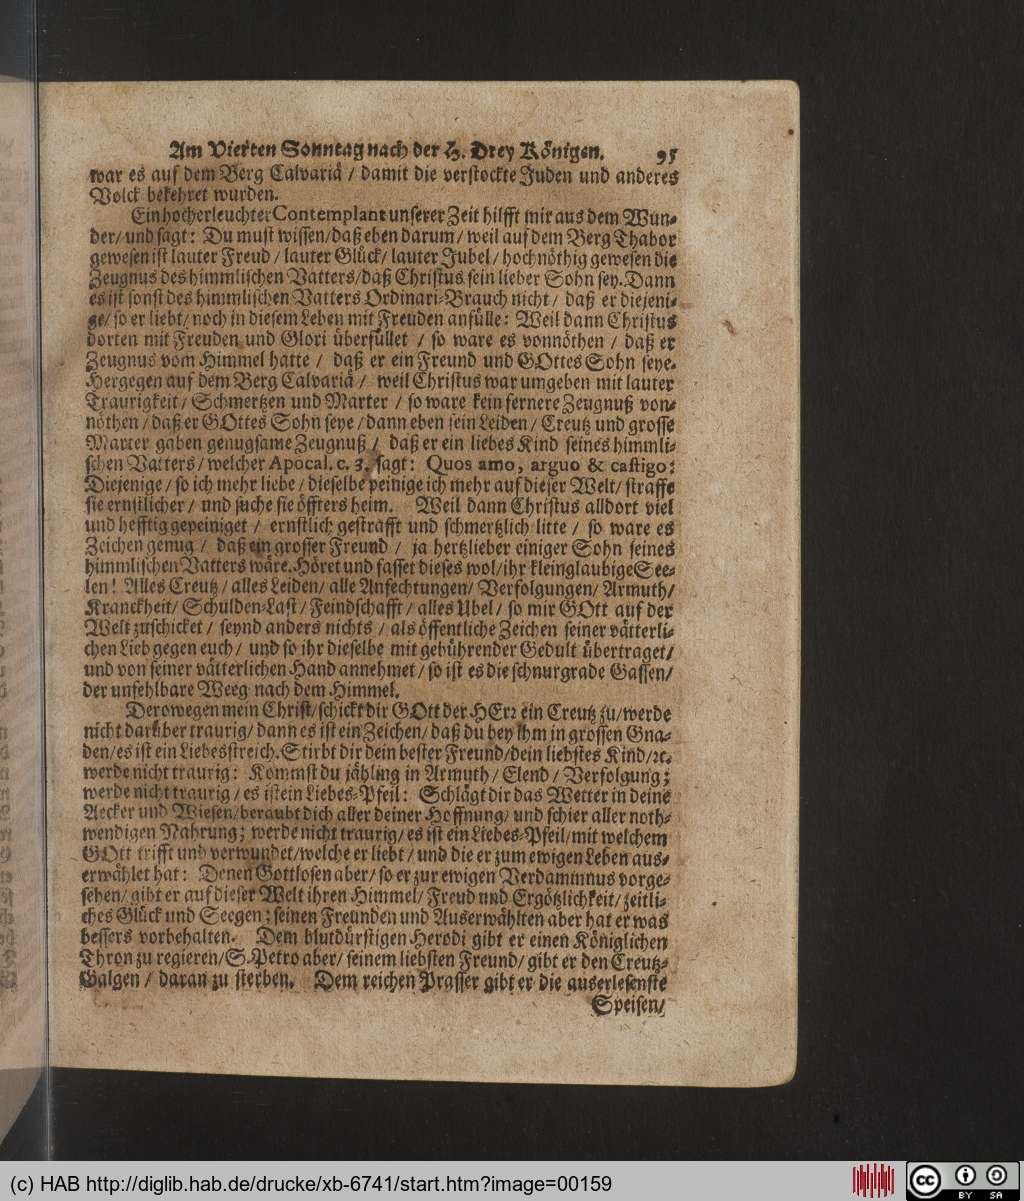 Am Vierten Sonntag nach der H. Drey Königen. 95
war es auf dem Berg Calvariä / damit die verstockte Juden und anderes
Volck bekehret wurden.
Ein hocherleuchter Contemplant unserer Zeit hilfft mir aus dem Wun-
der/ und sagt: Du must wissen/daß eben darum/ weil auf dem Berg Thabor
gewesen ist lauter Freud / lauter Glück/ lauter Jubel/ hochnöthig gewesen die
Zeugnus des himmlischen Vatters/daß Christus sein lieber Sohn sey. Dann
es ist sonst des himmlischen Vatters Ordinari-Brauch nicht/ daß er diejeni-
ge/ so er liebt/ noch in diesem Leben mit Freuden anfülle: Weil dann Christus
dorten mit Freuden und Glori überfüllet / so ware es vonnöthen / daß er
Zeugnus vom Himmel hatte / daß er ein Freund und GOttes Sohn seye.
Hergegen auf dem Berg Calvariä / weil Christus war umgeben mit lauter
Traurigkeit/ Schmertzen und Marter / so ware kein fernere Zeugnuß von-
nöthen / daß er GOttes Sohn seye / dann eben sein Leiden/ Creutz und grosse
Marter gaben genugsame Zeugnuß / daß er ein liebes Kind seines himmli-
schen Vatters/ welcher Apocal. c. 3. sagt: Quos amo, arguo & castigo:
Diejenige / so ich mehr liebe / dieselbe peinige ich mehr auf dieser Welt/ straffe
sie ernstlicher / und suche sie öffters heim. Weil dann Christus alldort viel
und hefftig gepeiniget / ernstlich gestrafft und schmertzlich litte / so ware es
Zeichen genug / daß ein grosser Freund / ja hertzlieber einiger Sohn seines
himmlischen Vatters wäre. Höret und fasset dieses wol/ihr kleinglaubige See-
len! Alles Creutz / alles Leiden/ alle Anfechtungen/ Verfolgungen/ Armuth/
Kranckheit/ Schulden-Last / Feindschafft / alles Ubel / so mir GOtt auf der
Welt zuschicket / seynd anders nichts / als öffentliche Zeichen seiner vätterli-
chen Lieb gegen euch / und so ihr dieselbe mit gebührender Gedult übertraget/
und von seiner vätterlichen Hand annehmet / so ist es die schnurgrade Gassen/
der unfehlbare Weeg nach dem Himmel.
Derowegen mein Christ/schickt dir GOtt der HErr ein Creutz zu/werde
nicht darüber traurig/ dann es ist ein Zeichen/ daß du bey ihm in grossen Gna-
den/es ist ein Liebesstreich. Stirbt dir dein bester Freund/dein liebstes Kind/ꝛc.
werde nicht traurig: Kommst du jähling in Armuth / Elend / Verfolgung;
werde nicht traurig / es ist ein Liebes-Pfeil: Schlägt dir das Wetter in deine
Aecker und Wiesen/beraubt dich aller deiner Hoffnung/ und schier aller noth-
wendigen Nahrung; werde nicht traurig/ es ist ein Liebes-Pfeil/mit welchem
GOtt trifft und verwundet/welche er liebt / und die er zum ewigen Leben aus-
erwählet hat: Denen Gottlosen aber/ so er zur ewigen Verdammnus vorge-
sehen/ gibt er auf dieser Welt ihren Himmel/ Freud und Ergötzlichkeit/ zeitli-
ches Glück und Seegen; seinen Freunden und Auserwählten aber hat er was
bessers vorbehalten. Dem blutdürstigen Herodi gibt er einen Königlichen
Thron zu regieren/S. Petro aber/ seinem liebsten Freund/ gibt er den Creutz-
Galgen / daran zu sterben. Dem reichen Prasser gibt er die auserlesenste
Speisen/
(c) HAB http://diglib.hab.de/drucke/xb-6741/start.htm?image=00159
cc BY SA